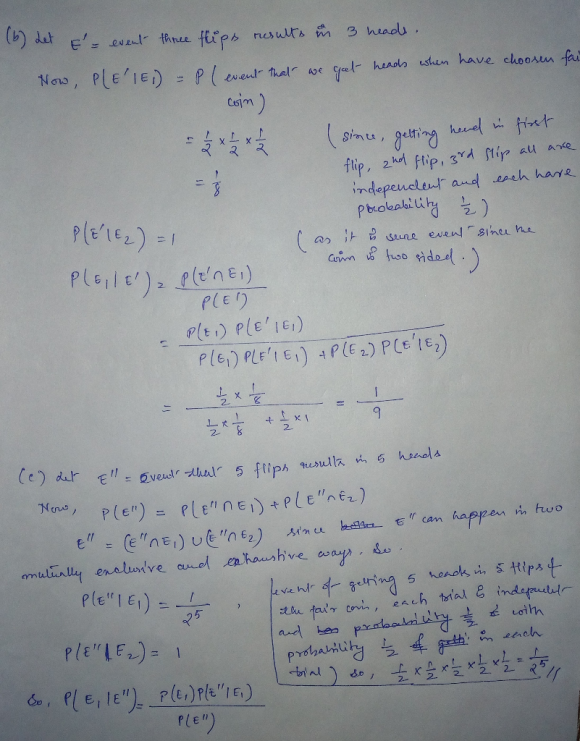 (b) Let E' = event three flips results in 3 heads.
Now, P(E'|E₁) = P( event that we get heads when have choosen fai
coin)
= 1/2 × 1/2 × 1/2
= 1/8
( since, getting head in first
flip, 2nd flip, 3rd flip all are
independent and each have
probability 1/2 )
P(E'|E₂) = 1
( as it is sure event since the
coin is two sided. )
P(E₁|E') = P(E'∩E₁) / P(E')
= P(E₁) P(E'|E₁) / P(E₁) P(E'|E₁) + P(E₂) P(E'|E₂)
= 1/2 × 1/8 / 1/2 × 1/8 + 1/2 × 1 = 1/9
(c) Let E" = Event that 5 flips results in 5 heads
Now, P(E") = P(E"∩E₁) + P(E"∩E₂)
E" = (E"∩E₁) ∪ (E"∩E₂) since E" can happen in two
mutually exclusive and exhaustive ways. So.
P(E"|E₁) = 1/2⁵ ,
P(E"|E₂) = 1
event of getting 5 heads in 5 flips of
the fair coin, each trial is independent
and probability 1/2 with
probability 1/2 in each
trial) so, 1/2 × 1/2 × 1/2 × 1/2 × 1/2 = 1/2⁵ //
So, P(E₁|E") = P(E₁)P(E"|E₁) / P(E")